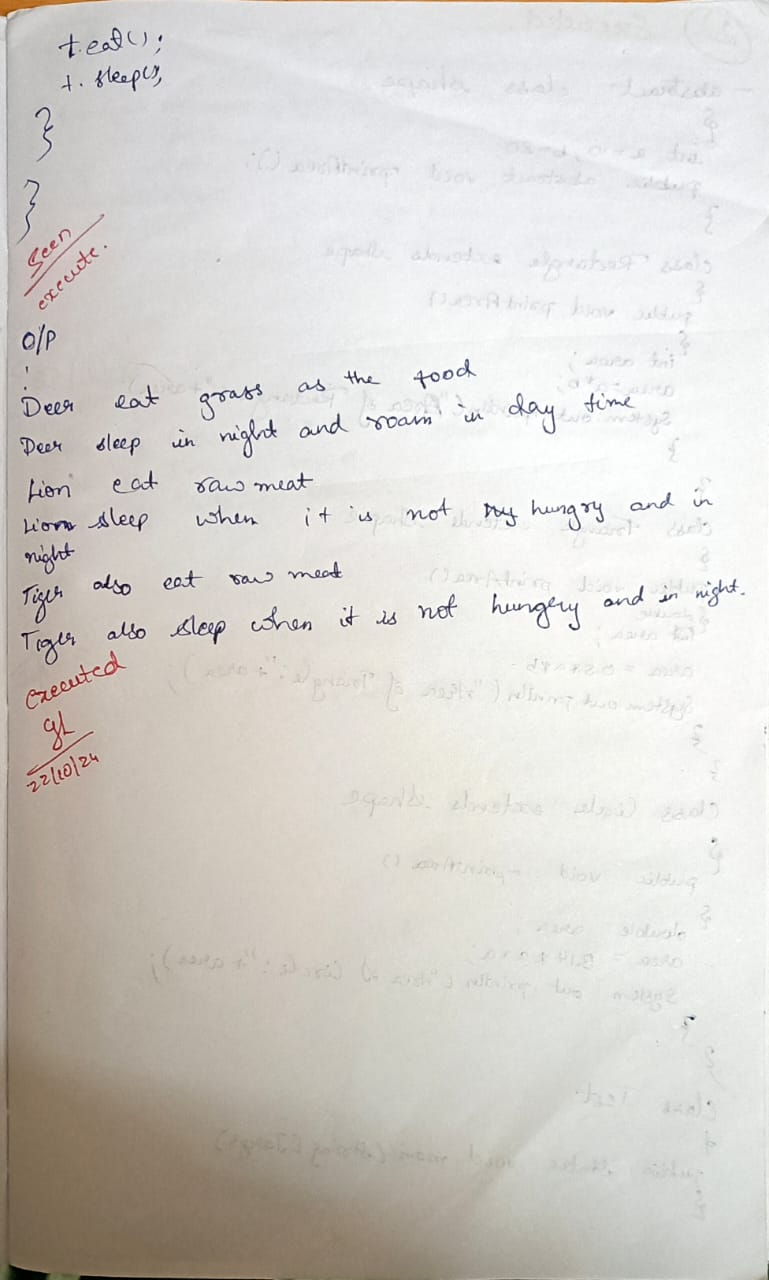 t.eat();
t.sleep();
}
}
Seen
execute.
O/P
:
Deer eat grass as the food
Deer sleep in night and roam in day time
Lion eat raw meat
Lion sleep when it is not hungry and in
night
Tiger also eat raw meat
Tiger also sleep when it is not hungery and in night.
executed
22/10/24